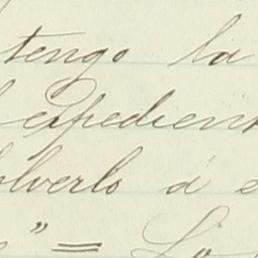 tengo la
expedient
olverlo a e
" = Lo